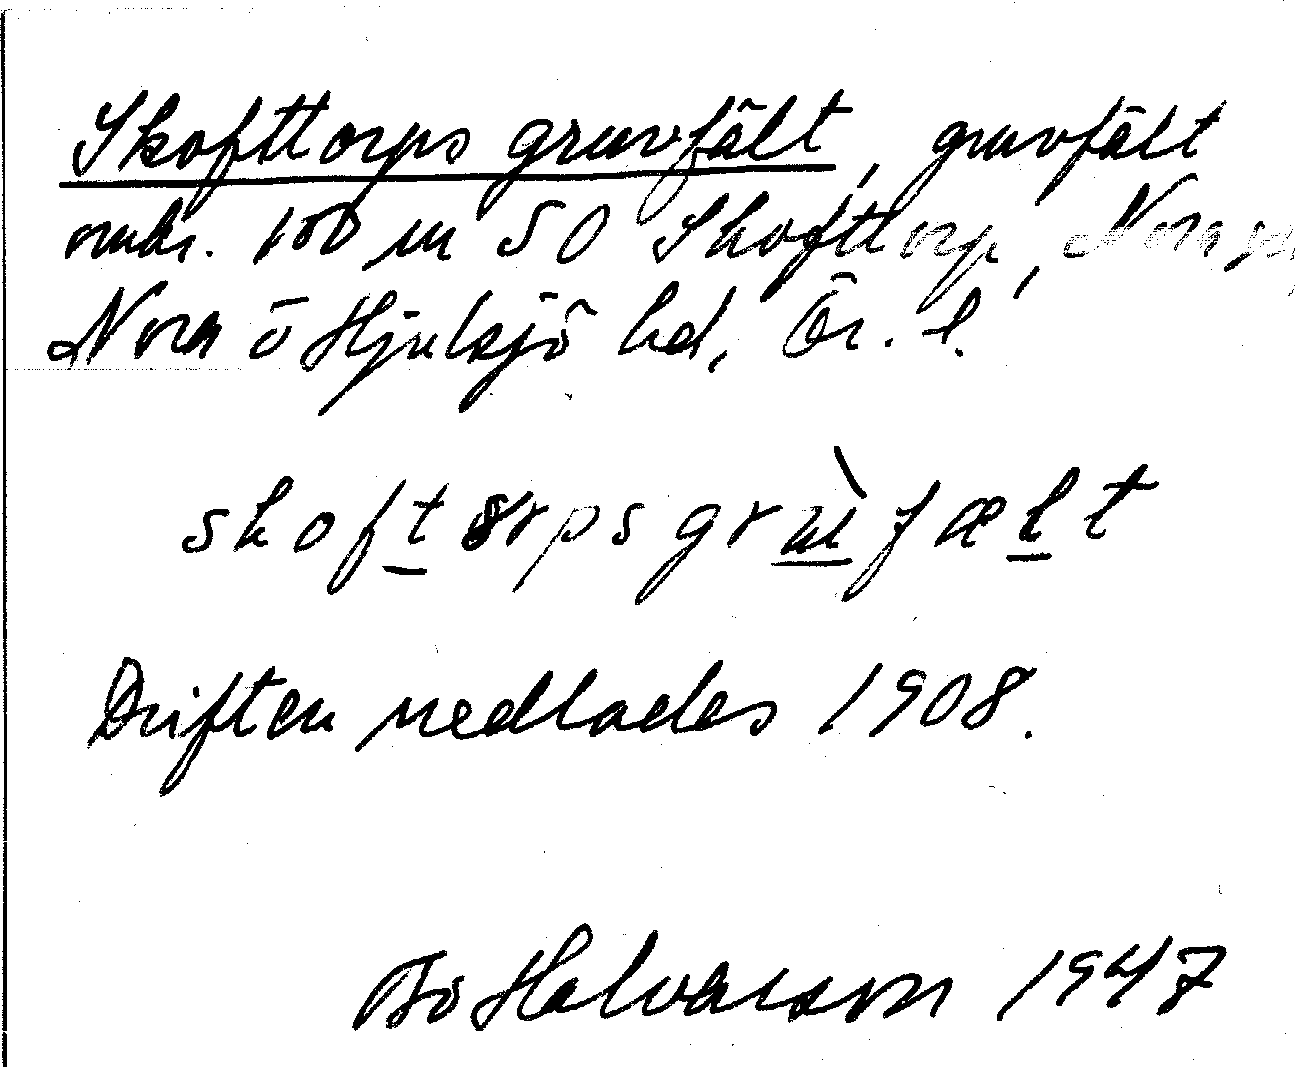 Skofttorps gruvfält, gruvfält
omkr. 100 m SO Skofttorp, Nora sn,
Nora o Hjulsjö hd, Ör. l.
skoftorpsgrùfælt
Driften nedlades 1908.
Bo Halvarson 1947